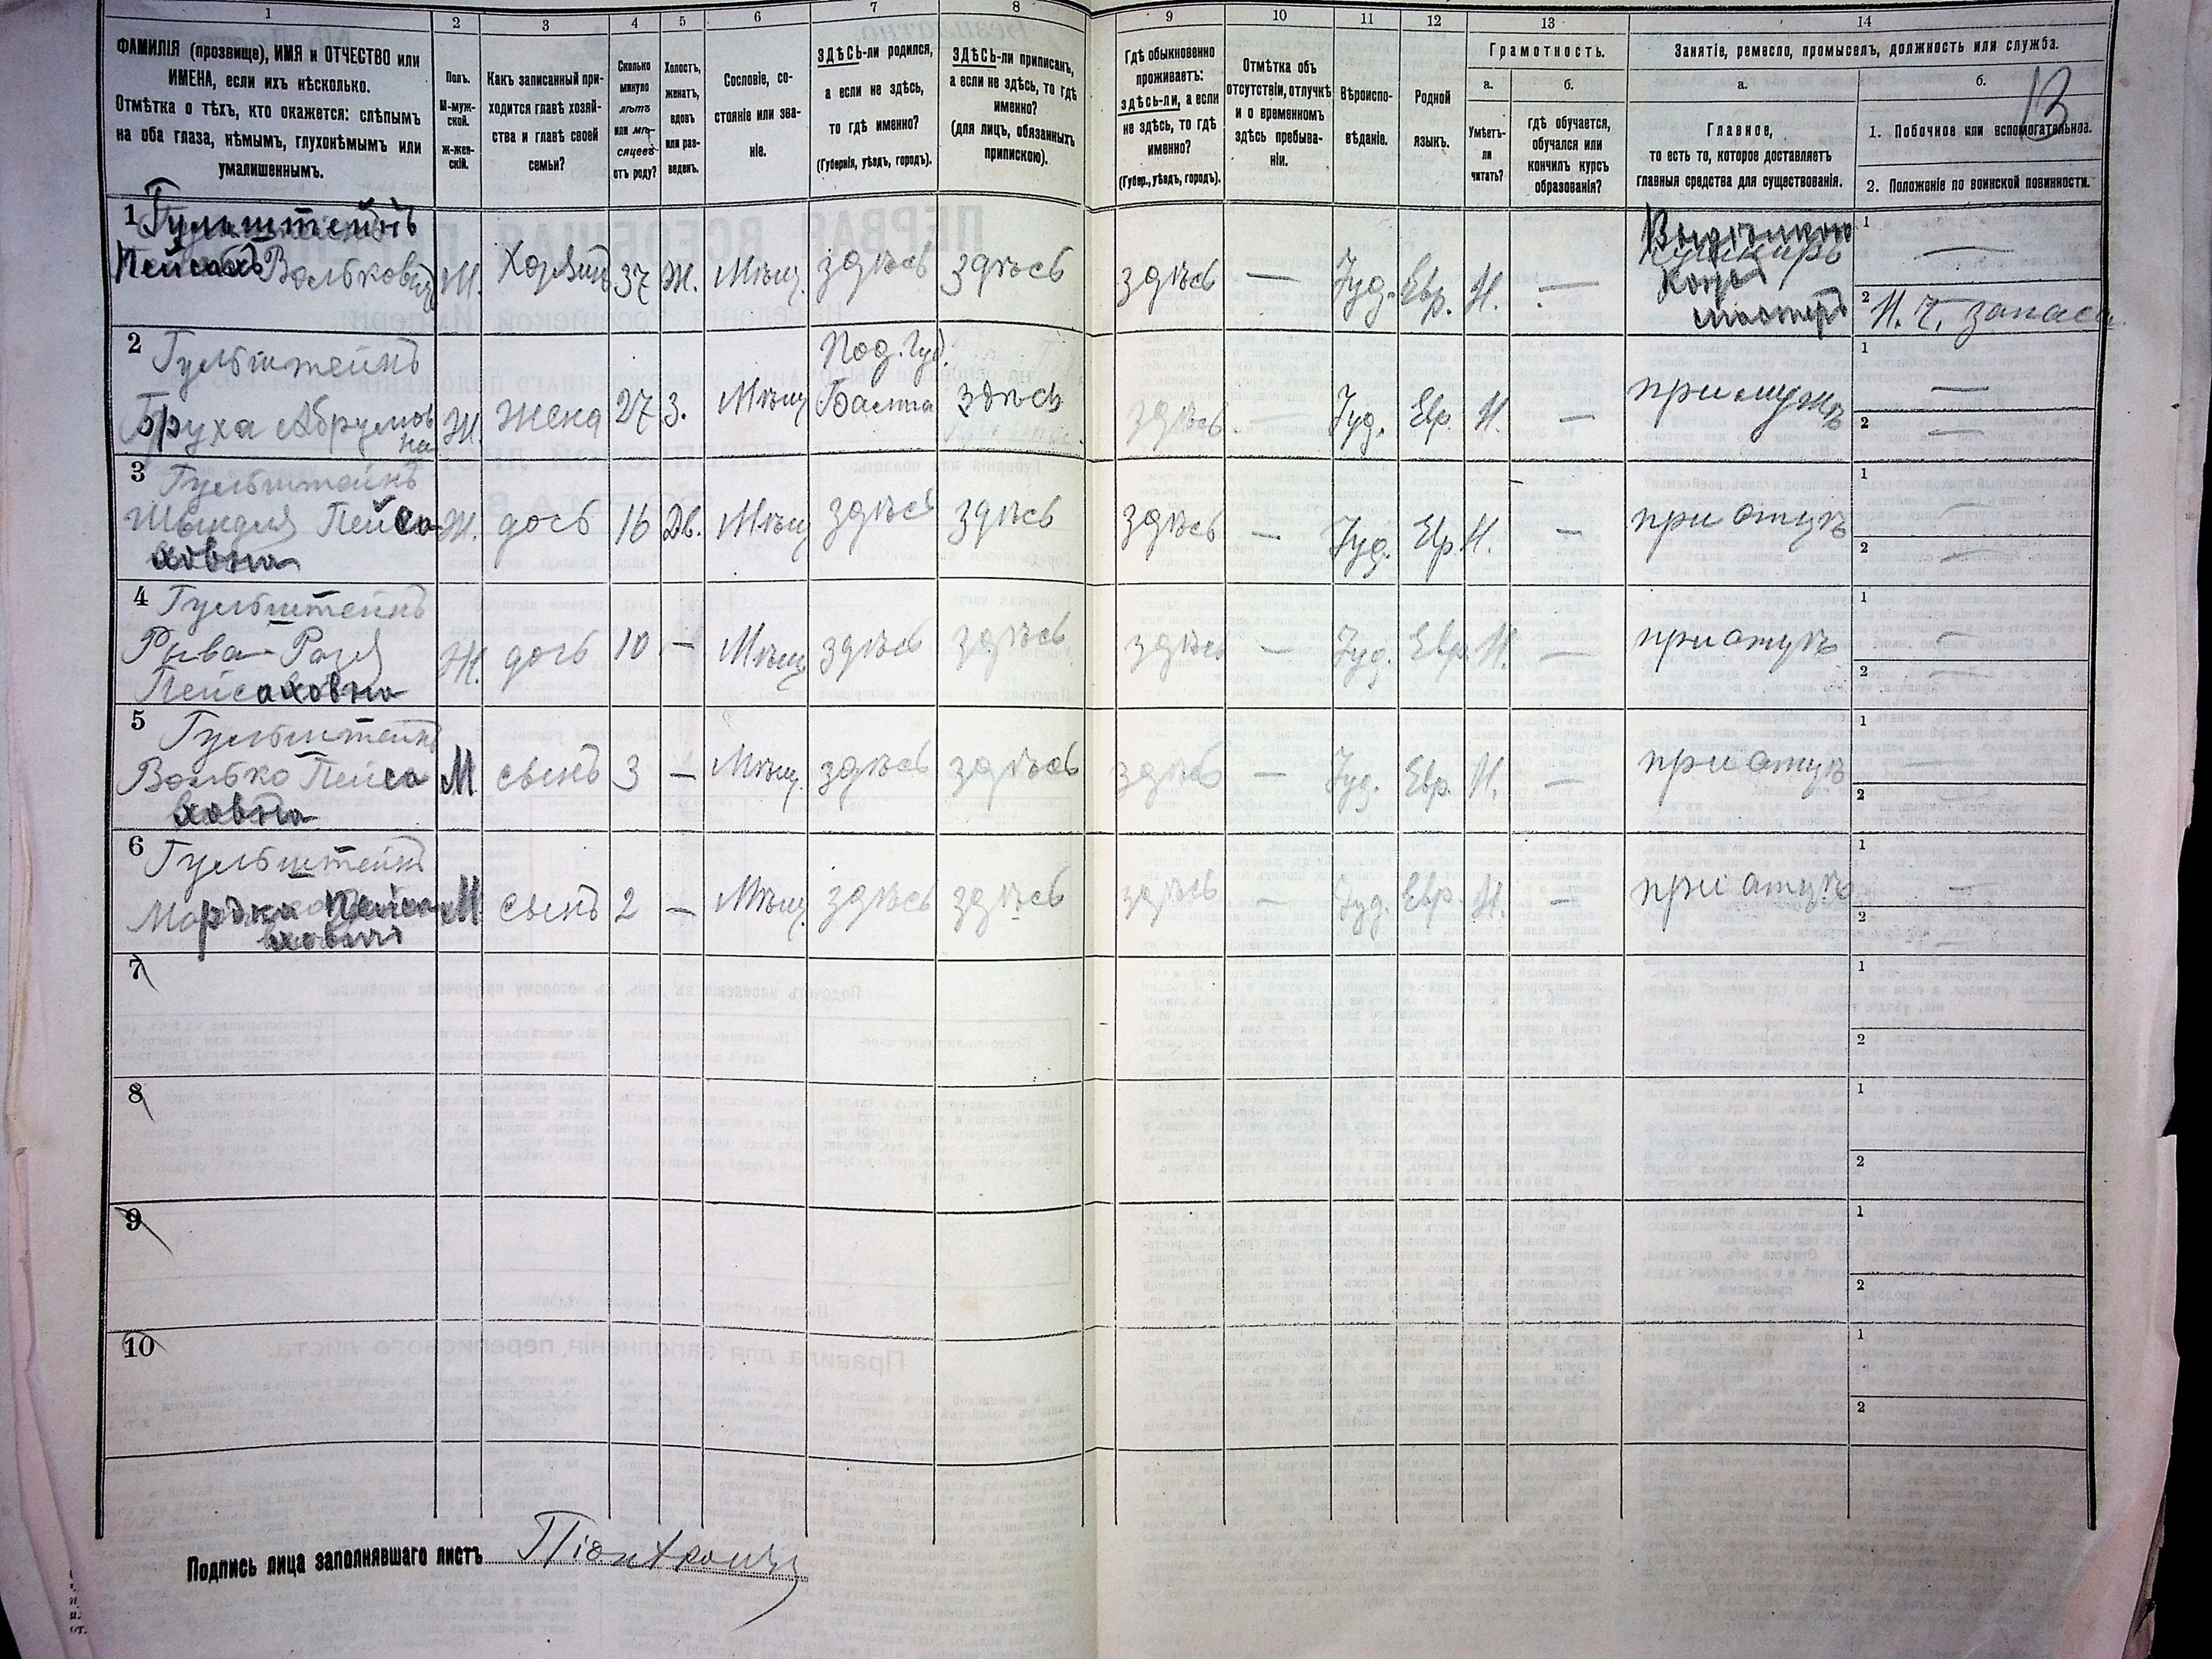 1 2 3 4 5 6 7 8 9 10 11 12 13 14
ФАМИЛІЯ (прозвище), ИМЯ и ОТЧЕСТВО или
ИМЕНА, если ихъ нѣсколько.
Отмѣтка о тѣхъ, кто окажется: слѣпымъ
на оба глаза, нѣмымъ, глухонѣмымъ или
умалишеннымъ.
Полъ.
М-муж-
ской.
Ж-жен-
скій.
Какъ записанный при-
ходится главѣ хозяй-
ства и главѣ своей
семьи?
Сколько
минуло
лѣтъ
или мѣ-
сяцевъ
отъ роду?
Холостъ,
женатъ,
вдовъ
или раз-
веденъ.
Сословіе, со-
стояніе или зва-
ніе.
ЗДѢСЬ-ли родился,
а если не здѣсь,
то гдѣ именно?
(Губернія, уѣздъ, городъ).
ЗДѢСЬ-ли приписанъ,
а если не здѣсь, то гдѣ
именно?
(для лицъ, обязанныхъ
припискою).
Гдѣ обыкновенно
проживаетъ:
здѣсь-ли, а если
не здѣсь, то гдѣ
именно?
(Губер., уѣздъ, городъ).
Отмѣтка объ
отсутствіи, отлучкѣ
и о временномъ
здѣсь пребыва-
ніи.
Вѣроиспо-
вѣданіе.
Родной
языкъ.
Грамотность.
а.
Умѣетъ-
ли
читать?
б.
гдѣ обучается,
обучался или
кончилъ курсъ
образованія?
Занятіе, ремесло, промыселъ, должность или служба.
а.
Главное,
то есть то, которое доставляетъ
главныя средства для существованія.
б.
13
1. Побочное или вспомогательное.
2. Положеніе по воинской повинности.
1 Гульштейнъ
Пейсахъ Вольковичъ М. Хозяинъ 37 Ж. Мѣщ. здѣсь здѣсь здѣсь — Іуд. Евр. Н. —
1 —
2 Н. Ч. запаса
2 Гульштейнъ
Бруха Абрумов
на Ж. жена 27 З. Мѣщ. Под. Губ.
Балта здѣсь здѣсь — Іуд. Евр. Н. — при мужѣ
1 —
2 —
3 Гульштейнъ
Пейса
ховна Ж. дочь 16 Дв. Мѣщ здѣсь здѣсь здѣсь — Іуд. Евр Н. — при отцѣ
1 —
2 —
4 Гульштейнъ
Рыва-
Пейсаховна Ж. дочь 10 — Мѣщ здѣсь здѣсь здѣсь — Іуд. Евр. Н. — при отцѣ
1 —
2 —
5 Гульштейнъ
Волько Пейса
ховна М сынъ 3 — Мѣщ. здѣсь здѣсь здѣсь — Іуд. Евр. Н. — при отцѣ
1 —
2 —
6 Гульштейнъ
Мордко Пейса
ховичъ М сынъ 2 — Мѣщ. здѣсь здѣсь здѣсь — Іуд. Евр. Н. — при отцѣ
1 —
2 —
7
1
2
8
1
2
9
1
2
10
1
2
Подпись лица заполнявшаго листъ